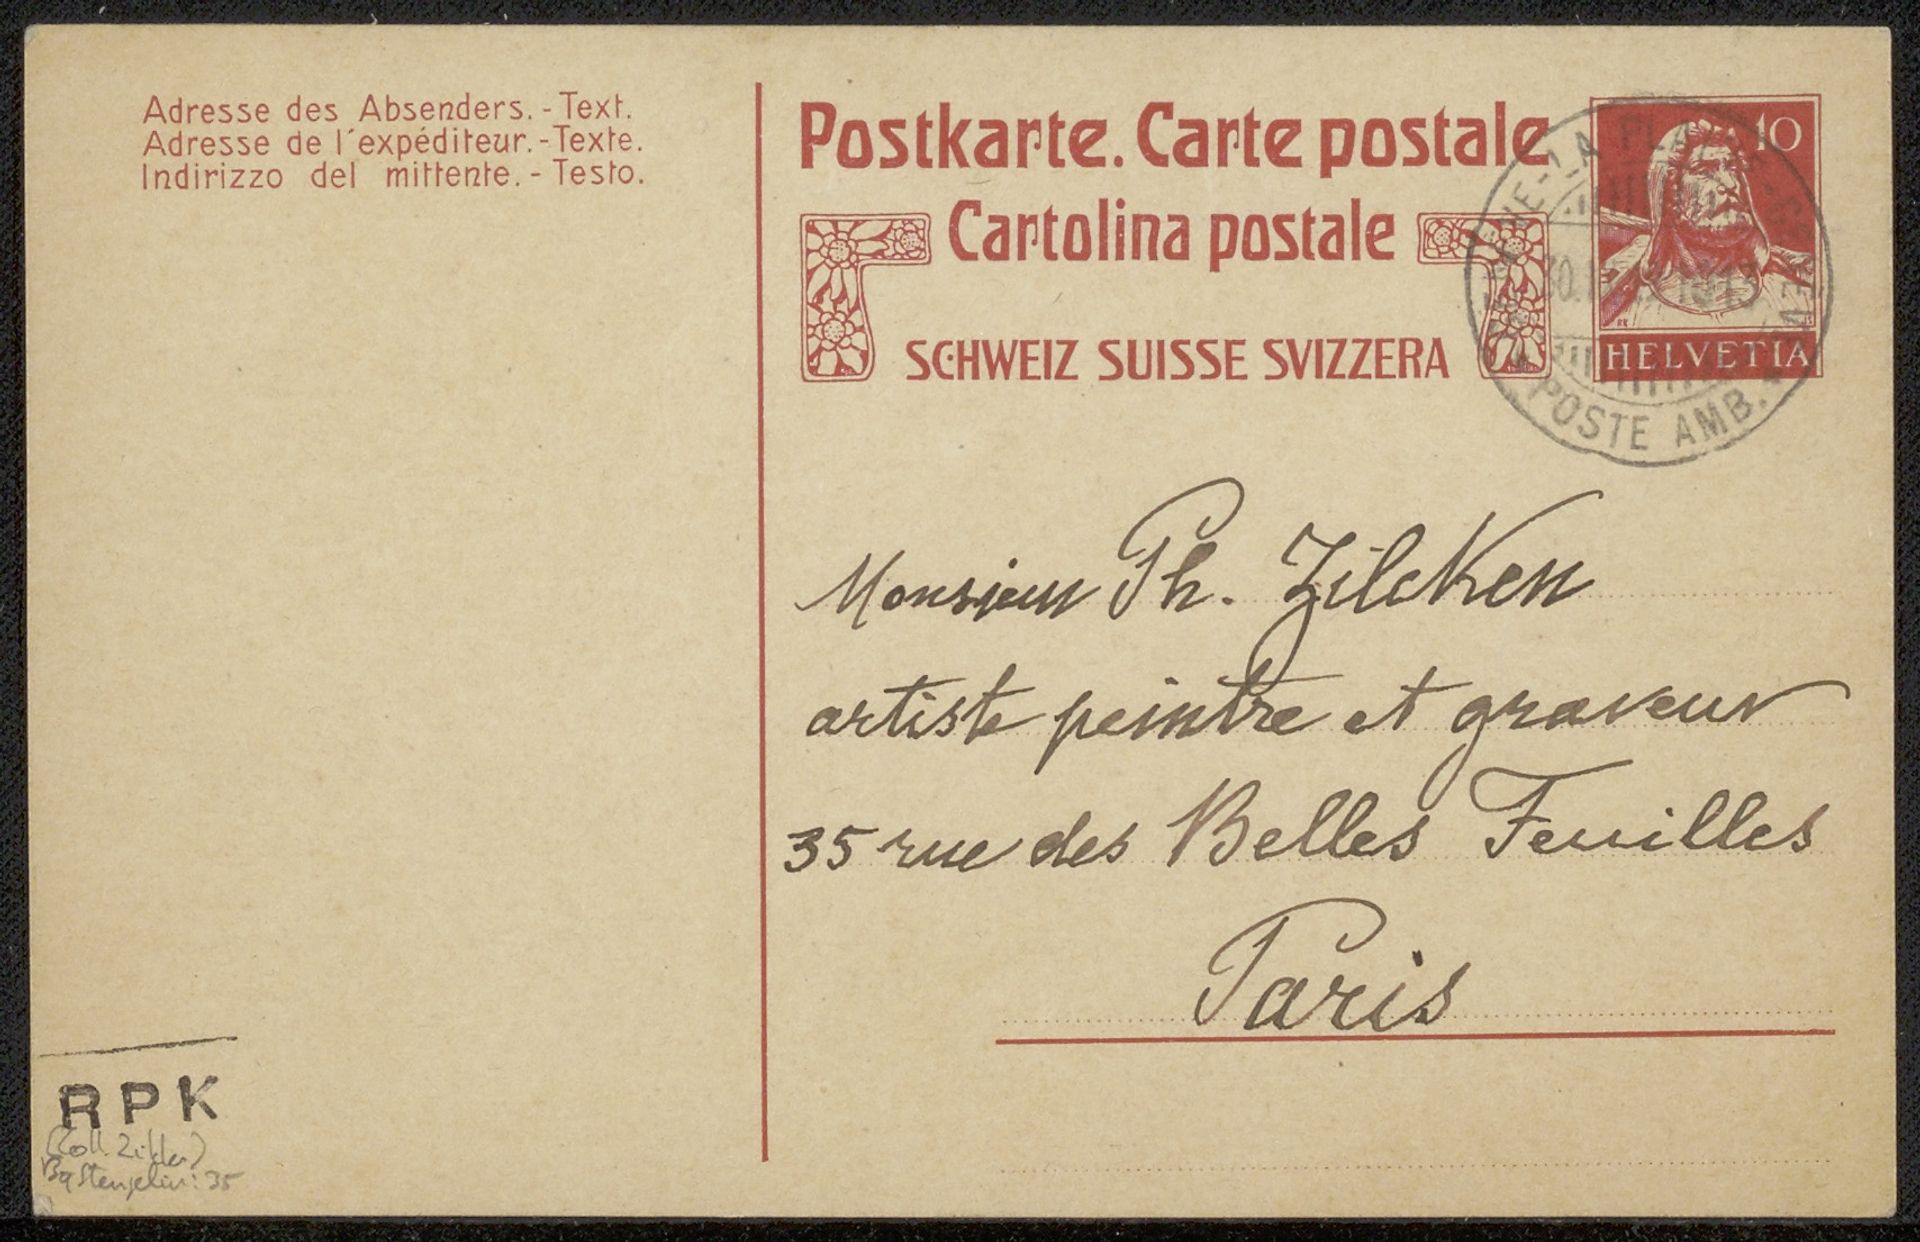 Adresse des Absenders. - Text.
Adresse de l'expéditeur. - Texte.
Indirizzo del mittente. - Testo.
Postkarte. Carte postale
Cartolina postale
SCHWEIZ SUISSE SVIZZERA
10
HELVETIA
POSTE AMB.
Monsieur Ph. Zilcken
artiste peintre et graveur
35 rue des Belles Feuilles
Paris
RPK
(Coll. Zilcken)
Stengelin: 35